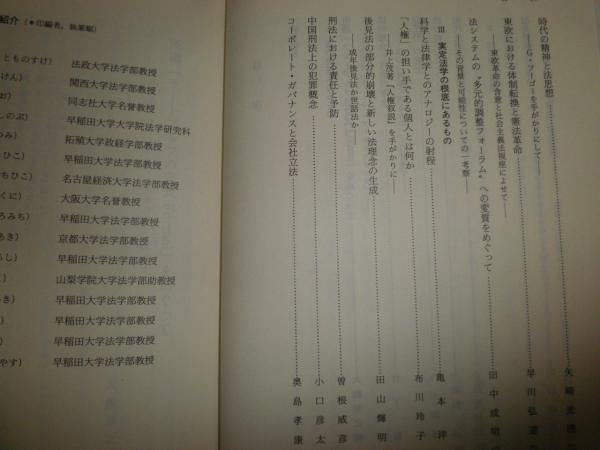 時代の精神と法思想
――G・フーゴーを手がかりにして――
矢崎光圀
東欧における体制転換と憲法革命
――東欧革命の含意と社会主義法視座によせて――
早川弘道
法システムの〝多元的調整フォーラム〟への変質をめぐって
――その背景と可能性についての一考察――
田中成明
Ⅲ 実定法学の根底にあるもの
科学と法律学とのアナロジーの射程
亀本洋
「人権」の担い手である個人とは何か
――井上茂著『人権叙説』を手がかりに――
布川玲子
後見法の部分的崩壊と新しい法理念の生成
――成年後見法か世話法か――
田山輝明
刑法における責任と予防
曽根威彦
中国刑法上の犯罪概念
小口彦太
コーポレート・ガバナンスと会社立法
奥島孝康
紹介（*印編者，執筆順）
とものすけ） 法政大学法学部教授
けん） 関西大学法学部教授
お） 同志社大学名誉教授
しのぶ） 早稲田大学大学院法学研究科
み） 拓殖大学政経学部教授
ひこ） 早稲田大学法学部教授
ちひこ） 名古屋経済大学法学部教授
くに） 大阪大学名誉教授
ろみち） 早稲田大学法学部教授
あき） 京都大学法学部教授
ろし） 早稲田大学法学部教授
） 山梨学院大学法学部助教授
き） 早稲田大学法学部教授
こ） 早稲田大学法学部教授
） 早稲田大学法学部教授
やす） 早稲田大学法学部教授